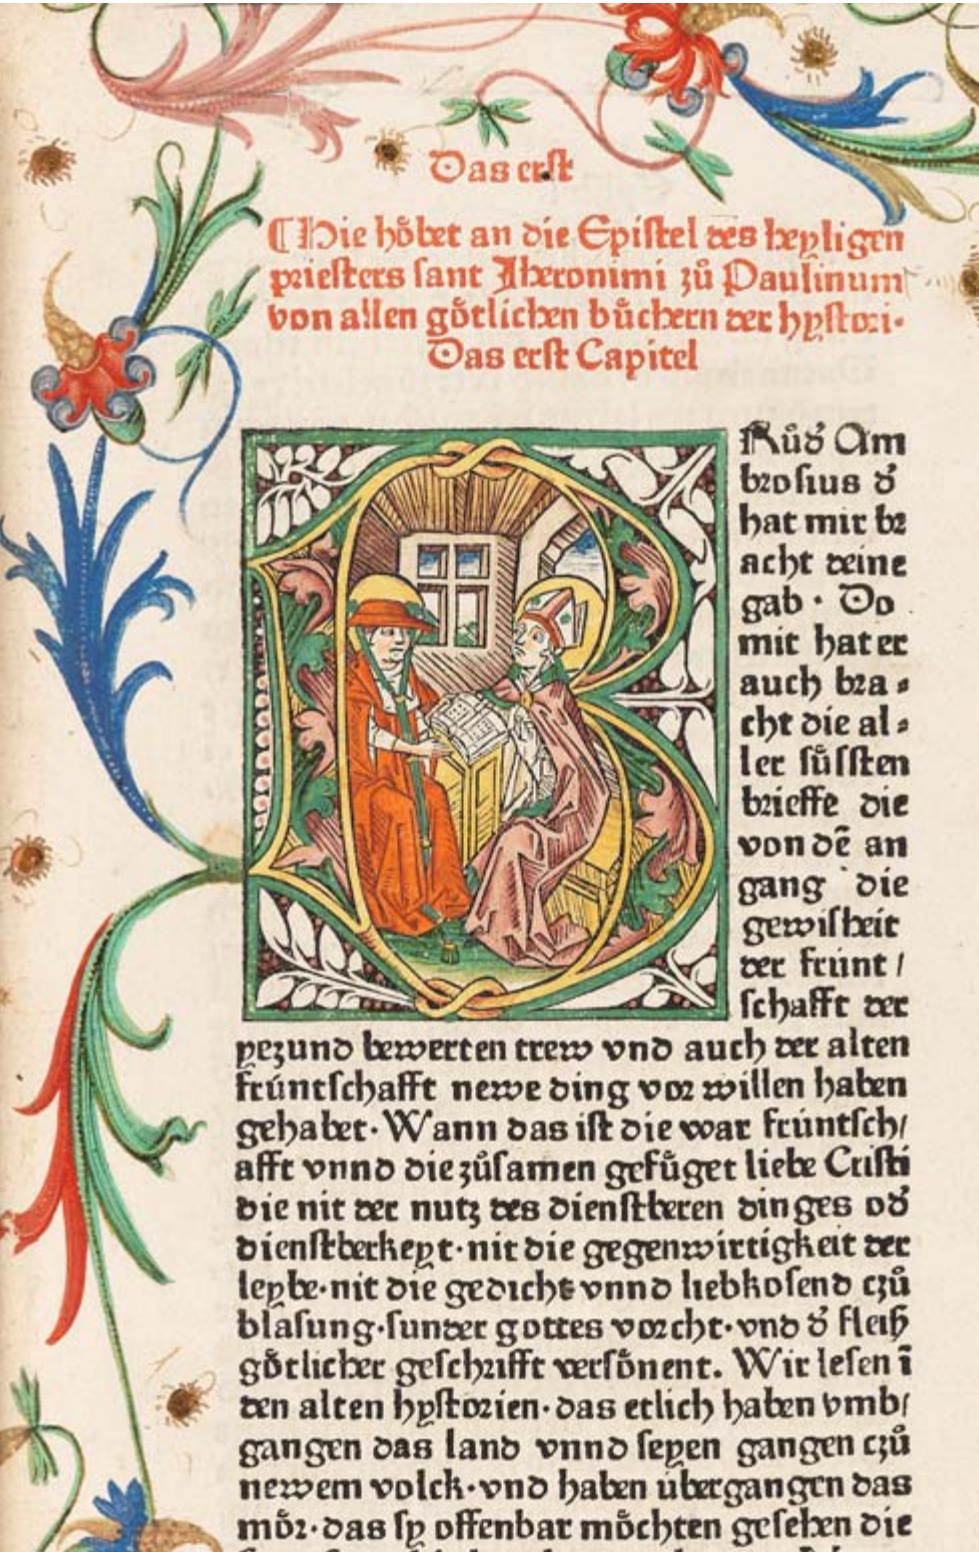 Das erst
¶Hie hoͤbet an die Epistel des heyligen
priesters sant Jheronimi zuͦ Paulinum
von allen goͤtlichen buͤchern der hystori·
Das erst Capitel
B
Ruͦd᷑ Am
brosius d᷑
hat mir br
acht deine
gab · Do
mit hat er
auch bra⸗
cht die al⸗
ler suͤssten
brieffe die
von dē an
gang die
gewisheit
der frúnt /
schafft der
yezund bewerten trew vnd auch der alten
frúntschafft newe ding vor willen haben
gehabet· Wann das ist die war frúntsch/
afft vnnd die zuͦsamen gefuͤget liebe Cristi
die nit der nutz des dienstberen dinges od᷑
dienstberkeyt·nit die gegenwirtigkeit der
leybe·nit die gedicht vnnd liebkosend czuͦ
blasung·sunder gottes vorcht·vnd d᷑ fleiß
goͤtlicher geschrifft versoͤnent. Wir lesen ī
den alten hystorien·das etlich haben vmb/
gangen das land vnnd seyen gangen czuͦ
newem volck·vnd haben úbergangen das
moͤr·das sy offenbar moͤchten gesehen die